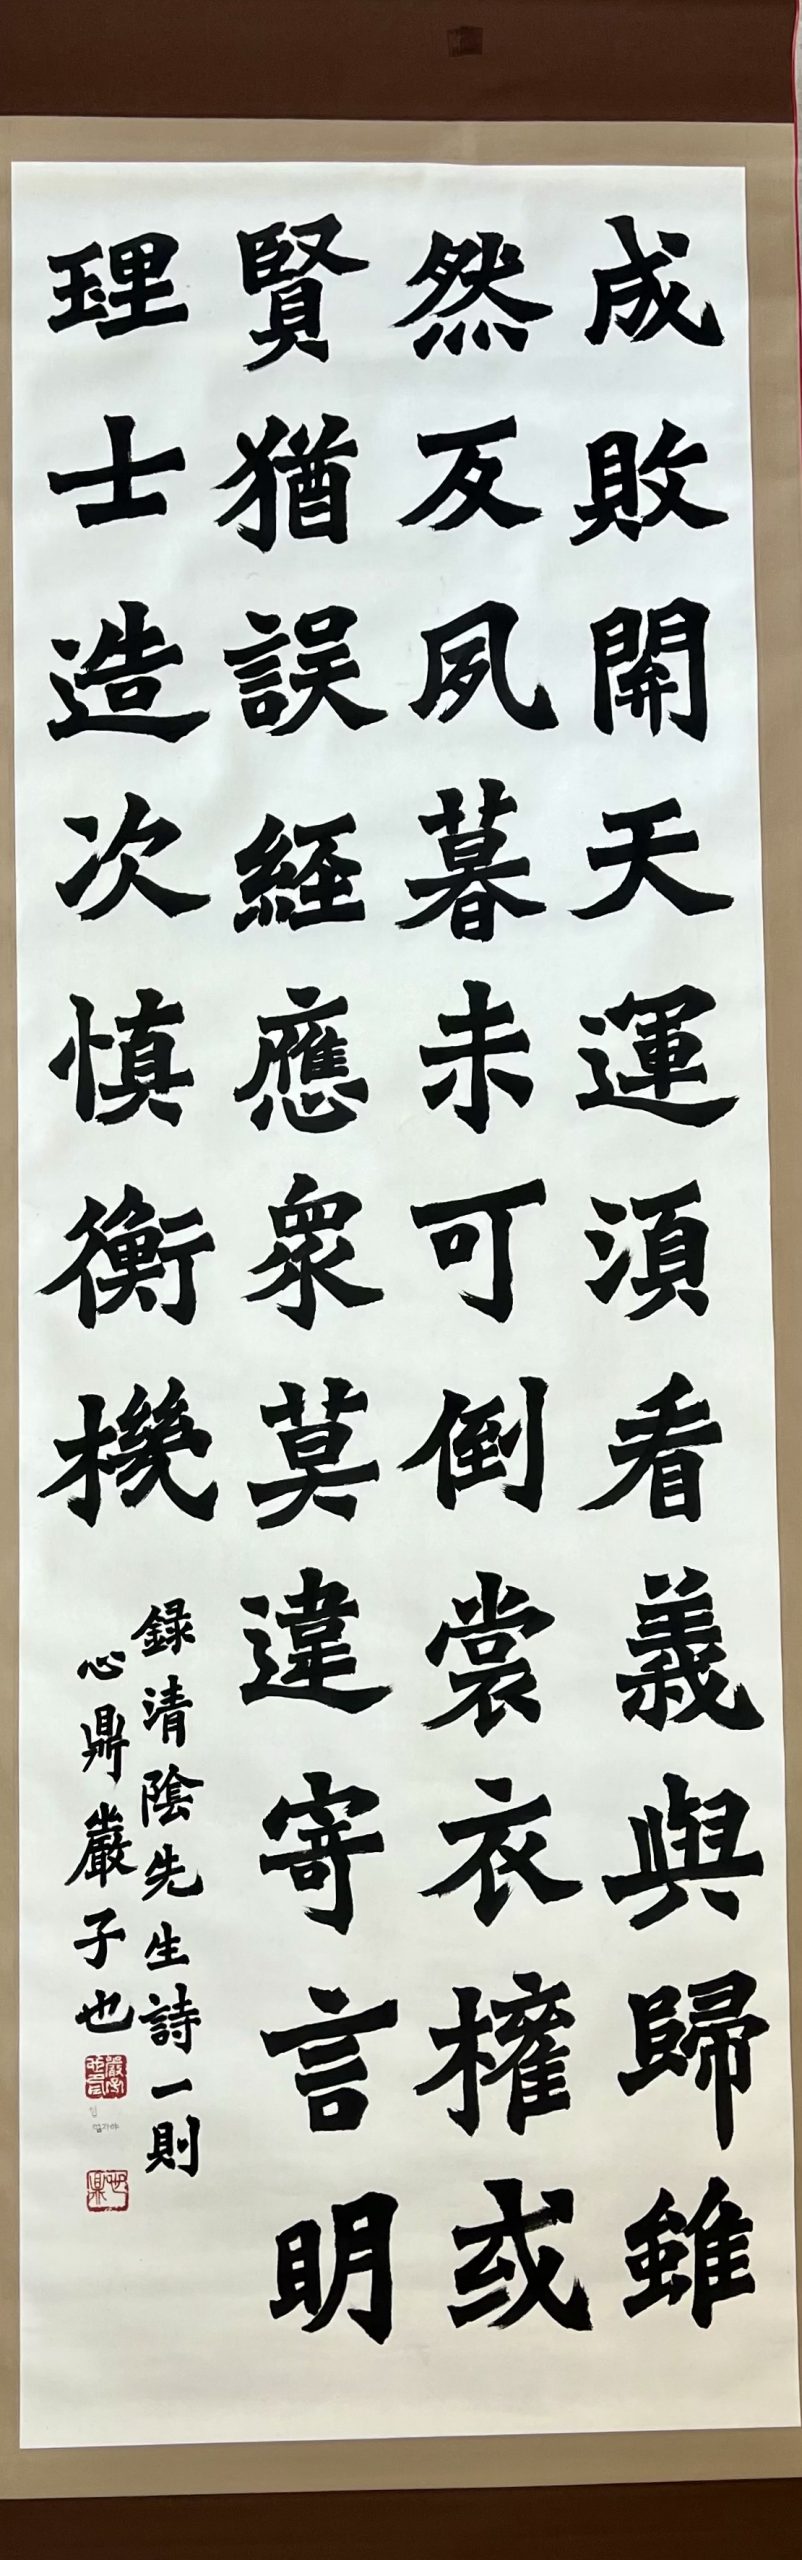 成敗開天運須看義與歸雖
然反夙暮未可倒裳衣權或
賢猶誤経應衆莫違寄言明
理士造次慎衡機
録清陰先生詩一則
心鼎嚴子也
엄자야